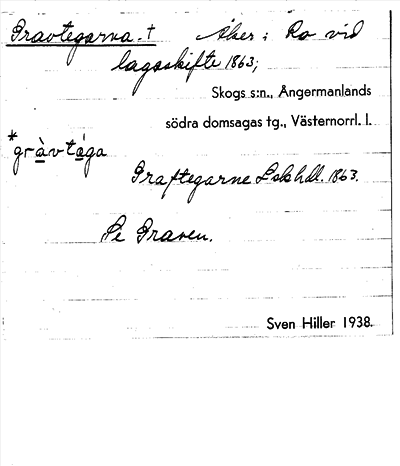 Gravtegarna. † Åker; Ro vid
lagaskifte 1863;
Skogs s:n., Ångermanlands
södra domsagas tg., Västernorrl. l.
*gràvtega
Graftegarne Lskhdl. 1863.
Se Graven.
Sven Hiller 1938.